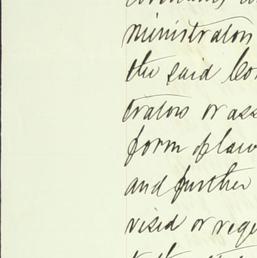 ministrators
the said Con
trators or ass
form of law
and further
vised or requ